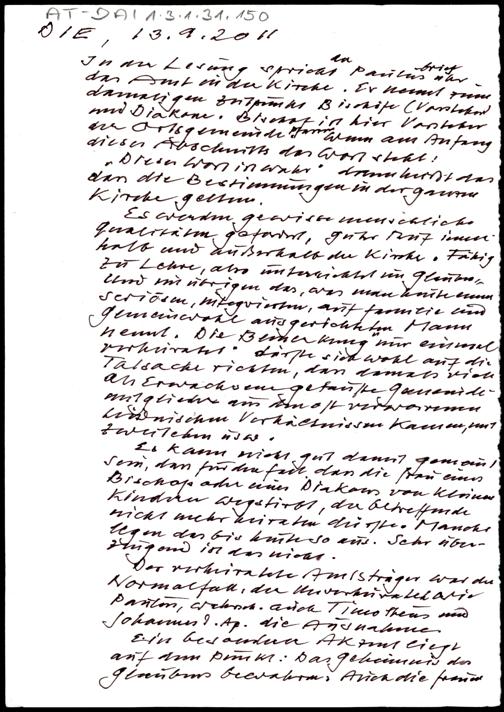 AT-DAI 1.3.1.31.150
DIE, 13.9.2011
In der Lesung spricht der Paulusbrief über
das Amt in der Kirche. Er nennt zum
damaligen Zeitpunkt Bischöfe (Vorsteher
und Diakone. Bischof ist hier Vorsteher
der Ortsgemeinde Pfarre Wenn am Anfang
dieses Abschnitts das Wort steht:
"Dieses Wort ist wahr" dann heißt das
dass die Bestimmungen in der ganzen
Kirche gelten.
Es werden gewisse menschliche
Qualitäten gefordert, guter Ruf inner-
halb und außerhalb der Kirche. Fähig
zu Lehre, also unterrichtet im Glauben
und im übrigen das, was man heute einen
seriösen, integrierten, auf Familie und
Gemeinwohl ausgerichteten Mann
nennt. Die Bemerkung "nur einmal
verheiratet" dürfte sich wohl auf die
Tatsache richten, dass damals viele
als Erwachsene getaufte Gemeinde-
mitglieder aus sonst verworrenen
heidnischen Verhältnissen kamen, mit
Zweitleben usw.
Es kann nicht gut damit gemeint
sein, dass für den Fall dass die Frau eines
Bischofs oder eines Diakons von kleinen
Kindern wegstirbt, der betreffende
nicht mehr heiraten dürfte. Manche
legen das bis heute so aus. Sehr über-
zeugend ist das nicht.
Der verheiratete Amtsträger war der
Normalfall, der Unverheiratete wie
Paulus, wahrsch. auch Timotheus und
Johannes d. Ap. die Ausnahme
Ein besonderer Akzent liegt
auf dem Punkt: Das Geheimnis des
Glaubens bewahren. Auch die Frauen